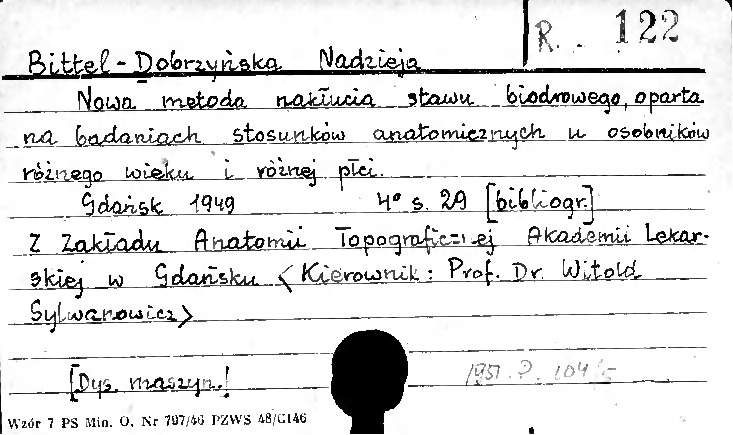 R. . 122
Bittel-Dobrzyńska Nadzieja
Nowa metoda nakłucia stawu biodrowego, oparta
na badaniach stosunków anatomicznych u osobników
różnego wieku i różnej płci.
Gdańsk 1949 4° s. 29 [bibliogr.]
Z Zakładu Anatomii Topograficznej Akademii Lekar-
skiej w Gdańsku <Kierownik: Prof. Dr. Witold
Sylwanowicz>
[Dys. maszyn.]
1951. P. 104/5
Wzór 7 PS Min. O. Nr 797/46 PZWS 48/G146